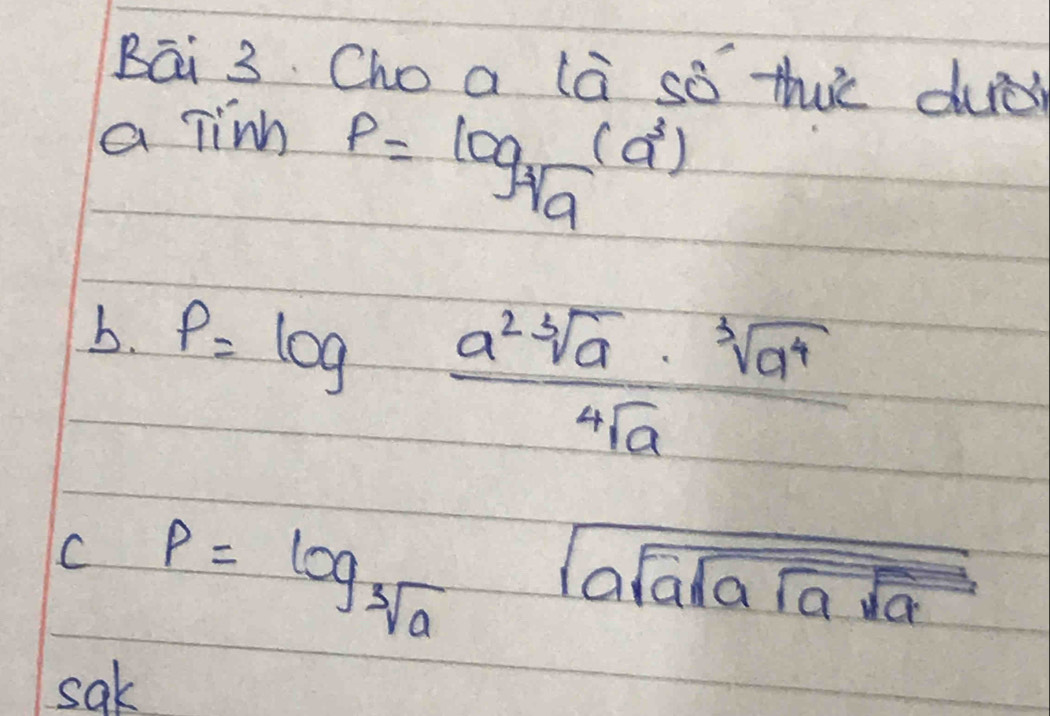 Bài 3. Cho a là số thực dươn
a Tính P = log_∛a (a³)
b. P = log (a² ∛a . ∛a⁴) / ∜a
c P = log_∛a √(a√(a√(a√(a√a))))
sgk